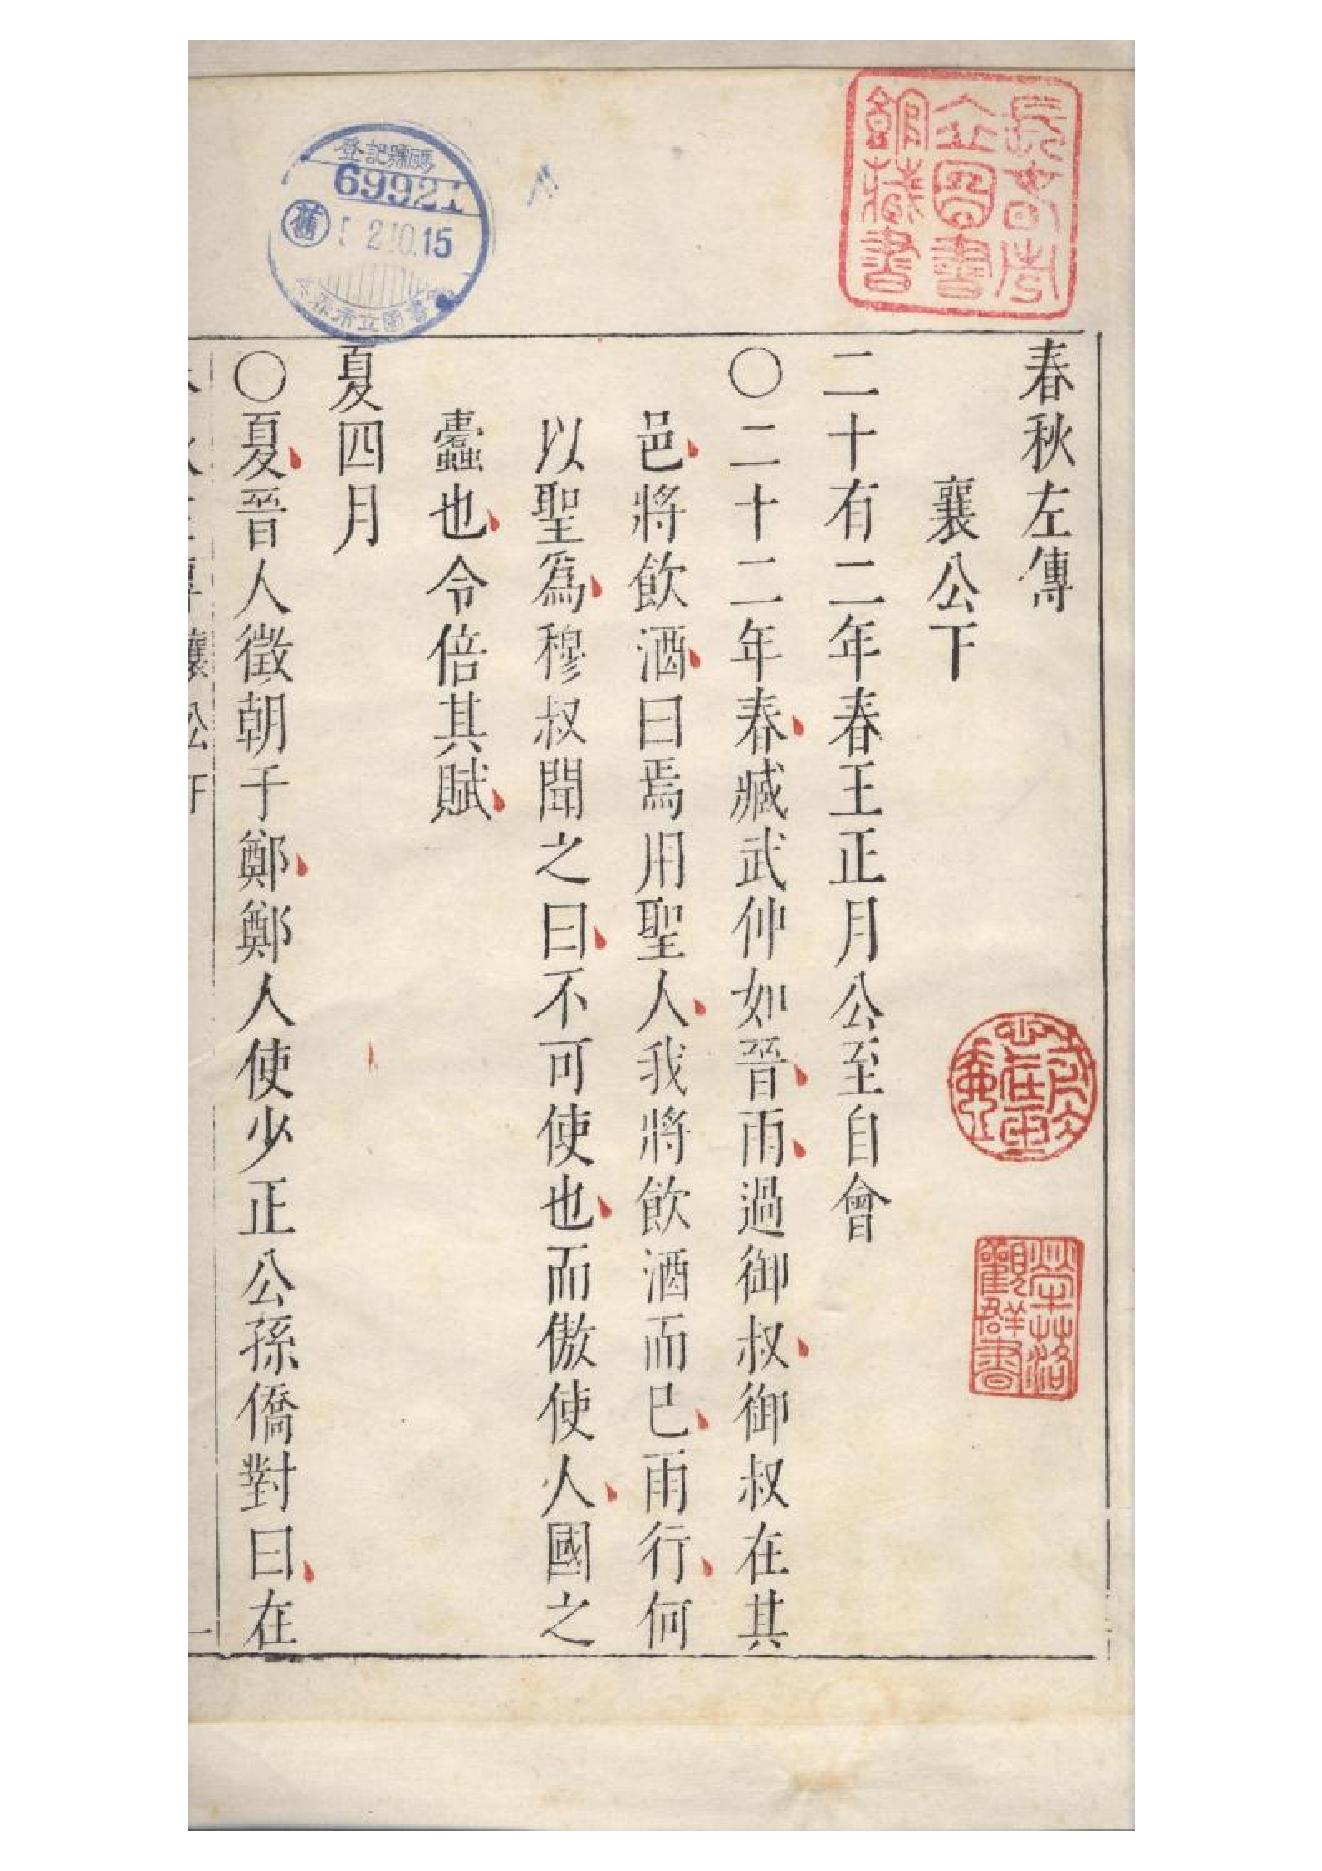 春秋左傳
襄公下
二十有二年春王正月公至自會
〇二十二年春臧武仲如晉雨過御叔御叔在其
邑將飲酒曰焉用聖人我將飲酒而已雨行何
以聖爲穆叔聞之曰不可使也而傲使人國之
蠹也令倍其賦
夏四月
〇夏晉人徵朝于鄭鄭人使少正公孫僑對曰在
長春市立圖書館藏書
登記號碼
69921
舊
2.10.15
市立圖書
榮落觀群書